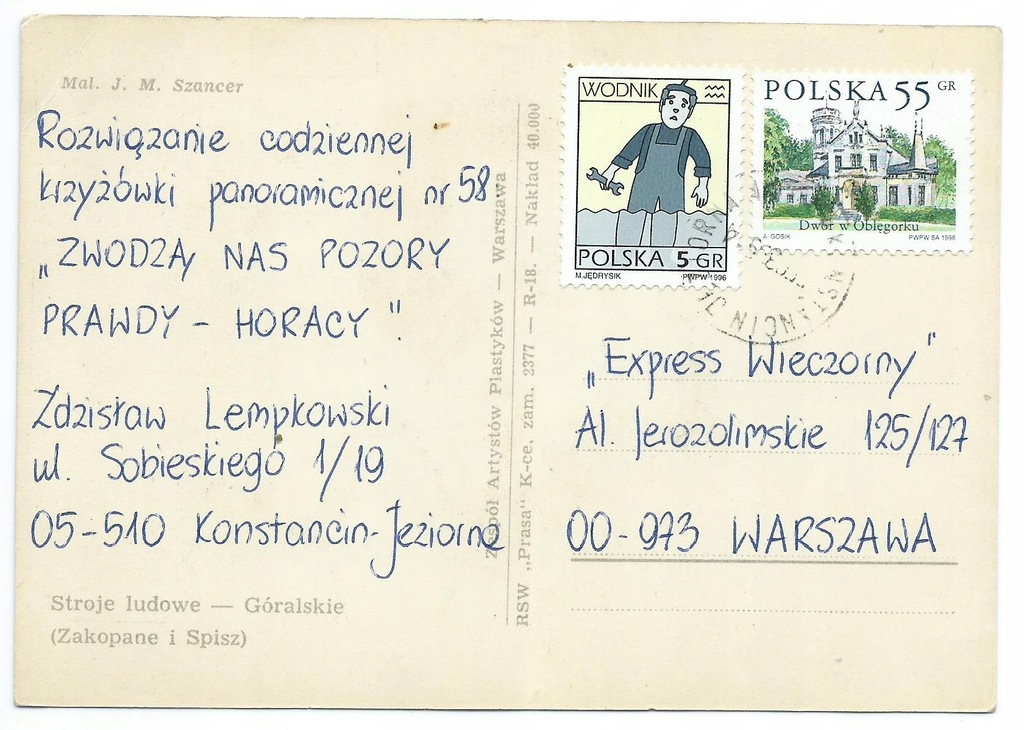 Mal. J. M. Szancer
Rozwiązanie codziennej
krzyżówki panoramicznej nr 58
„ZWODZĄ NAS POZORY
PRAWDY - HORACY"
Zdzisław Lempkowski
ul. Sobieskiego 1/19
05-510 Konstancin-Jeziorna
Stroje ludowe — Góralskie
(Zakopane i Spisz)
Zespół Artystów Plastyków — Warszawa
RSW „Prasa" K-ce, zam. 2377 — R-18. — Nakład 40.000
WODNIK
POLSKA 5 GR
M.JĘDRYSIK PWPW 1996
POLSKA 55 GR
Dwór w Oblęgorku
A. GOSIK PWPW SA 1998
„Express Wieczorny"
Al. Jerozolimskie 125/127
00-973 WARSZAWA